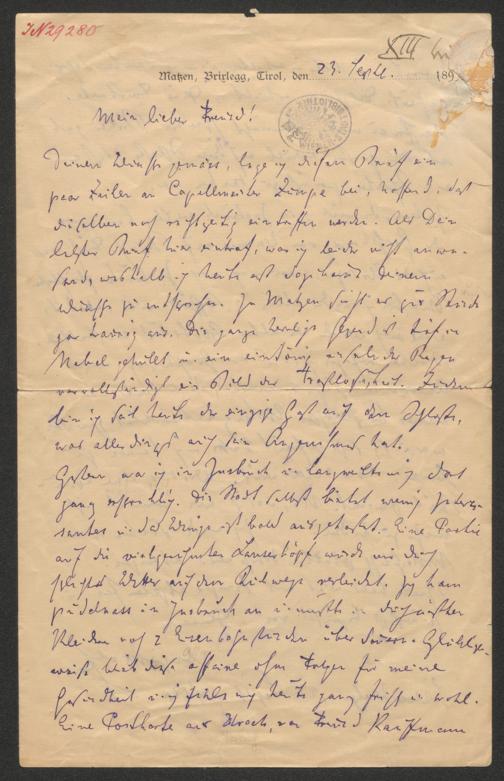 IN 29280
XIII
Matzen, Brixlegg, Tirol, den 23. Sept. 189
Mein lieber Freund!
Deinem Wunsche gemäss, lege ich diesem Brief ein
paar Zeilen an Capellmeister Zumpe bei, hoffend, dass
dieselben noch rechtzeitig eintreffen werden. Als Dein
letzter Brief hier eintraf, war ich leider nicht anwe-
send, weshalb ich heute erst dazu komme Deinem
Wunsche zu entsprechen. In Matzen sieht es zur Stunde
gar traurig aus. Die ganze herrliche Gegend ist tief in
Nebel gehüllt u. ein eintönig rieselnder Regen
vervollständigt ein Bild der Trostlosigkeit. Zudem
bin ich seit heute der einzige Gast auf dem Schlosse,
was allerdings auch sein Angenehmes hat.
Gestern war ich in Insbruck u. langweilte mich dort
ganz schrecklich. Die Stadt selbst bietet wenig Interes-
santes u. das Wenige ist bald ausgekostet. Eine Partie
auf die vielgerühmten Lanserköpfe wurde mir durch
schlechtes Wetter auf dem Rückwege verleidet. Ich kam
pudelnass in Insbruck an u. musste in durchnässten
Kleidern noch 2 Eisenbahnstunden über dauern. Glücklicher-
weise blieb diese affaire ohne Folgen für meine
Gesundheit u. ich fühle mich heute ganz frisch u. wohl.
Eine Postkarte aus Urach, von Freund Kauffmann